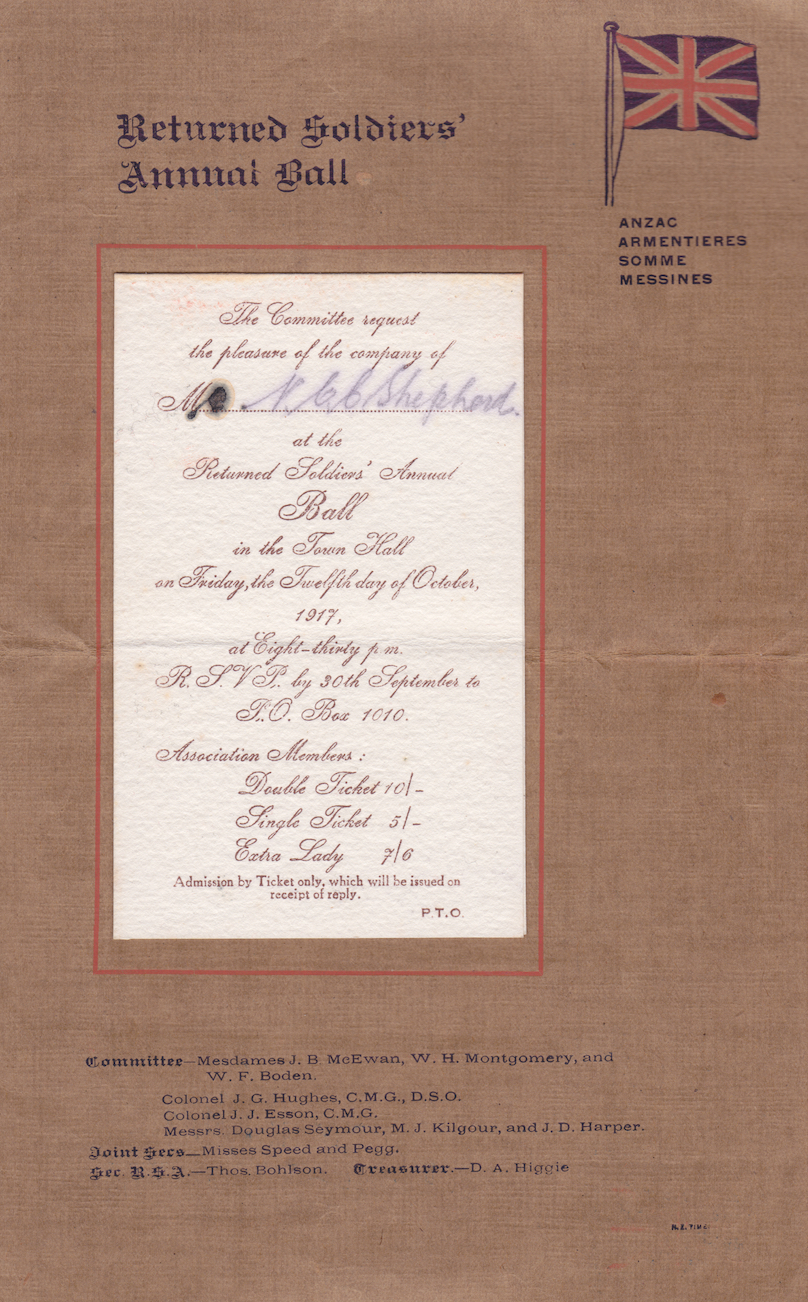 Returned Soldiers'
Annual Ball
ANZAC
ARMENTIERES
SOMME
MESSINES
The Committee request
the pleasure of the company of
M Shepherd.
at the
Returned Soldiers' Annual
Ball
in the Town Hall
on Friday, the Twelfth day of October,
1917,
at Eight-thirty p.m.
R. S. V. P. by 30th September to
P.O. Box 1010.
Association Members :
Double Ticket 10/-
Single Ticket 5/-
Extra Lady 7/6
Admission by Ticket only, which will be issued on
receipt of reply.
P.T.O.
Committee—Mesdames J. B. McEwan, W. H. Montgomery, and
W. F. Boden.
Colonel J. G. Hughes, C.M.G., D.S.O.
Colonel J. J. Esson, C.M.G.
Messrs. Douglas Seymour, M. J. Kilgour, and J. D. Harper.
Joint Secs—Misses Speed and Pegg.
Sec. R.S.A.—Thos. Bohlson. Treasurer.—D. A. Higgie